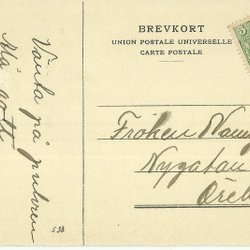 BREVKORT
UNION POSTALE UNIVERSELLE
CARTE POSTALE
5
Vänta på pulvren
Må gott
Fröken Nanny
Nygatan
Öreb
538